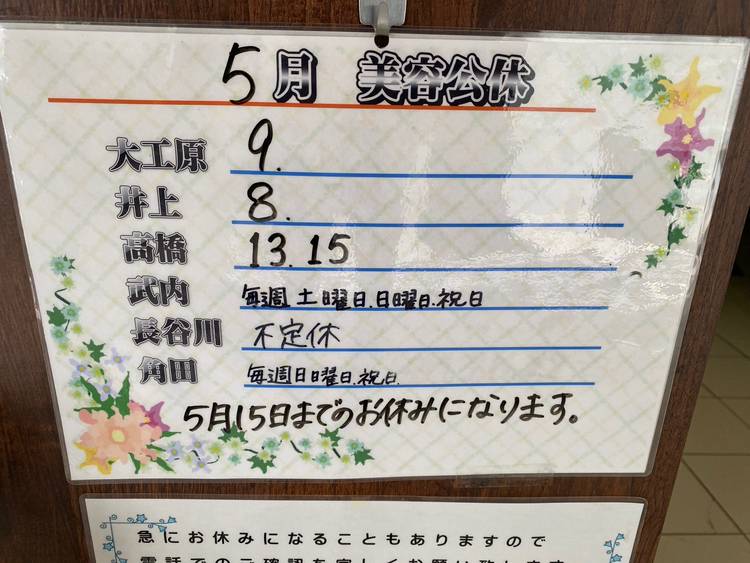 5月 美容公休
大工原 9.
井上 8.
高橋 13.15
武内 毎週土曜日.日曜日.祝日
長谷川 不定休
角田 毎週日曜日.祝日.
5月15日までのお休みになります。
急にお休みになることもありますので
電話でのご確認を宜しくお願い致します